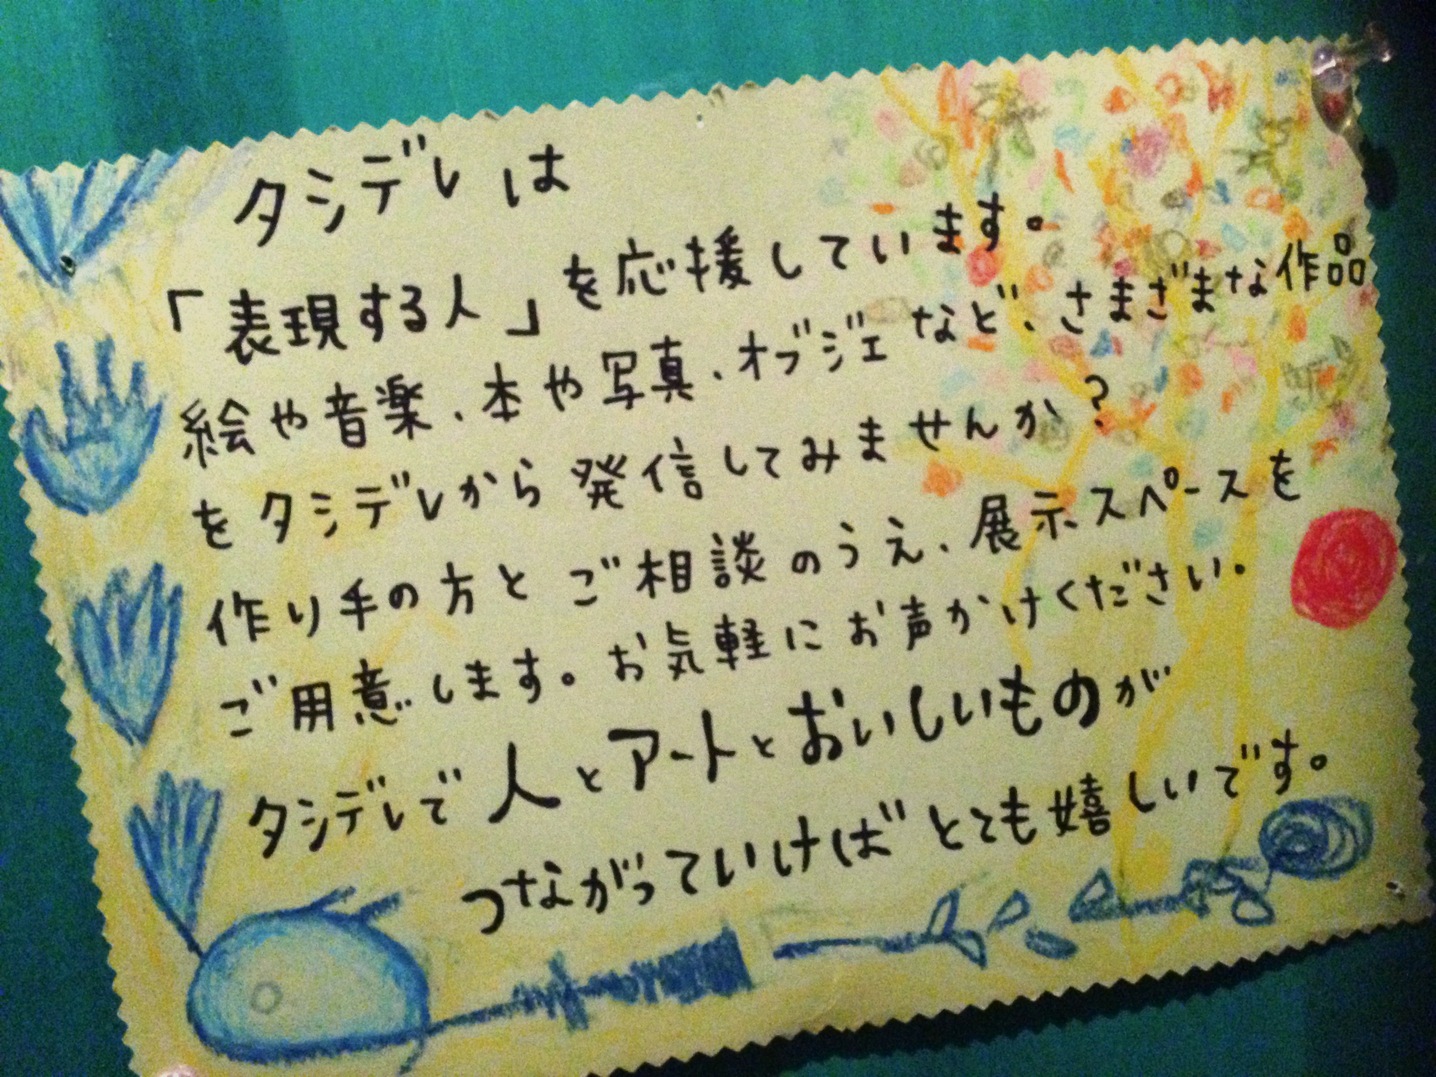 タシデレは
「表現する人」を応援しています。
絵や音楽、本や写真、オブジェなど、さまざまな作品
をタシデレから発信してみませんか?
作り手の方とご相談のうえ、展示スペースを
ご用意します。お気軽にお声かけください。
タシデレで人とアートとおいしいものが
つながっていけばとても嬉しいです。